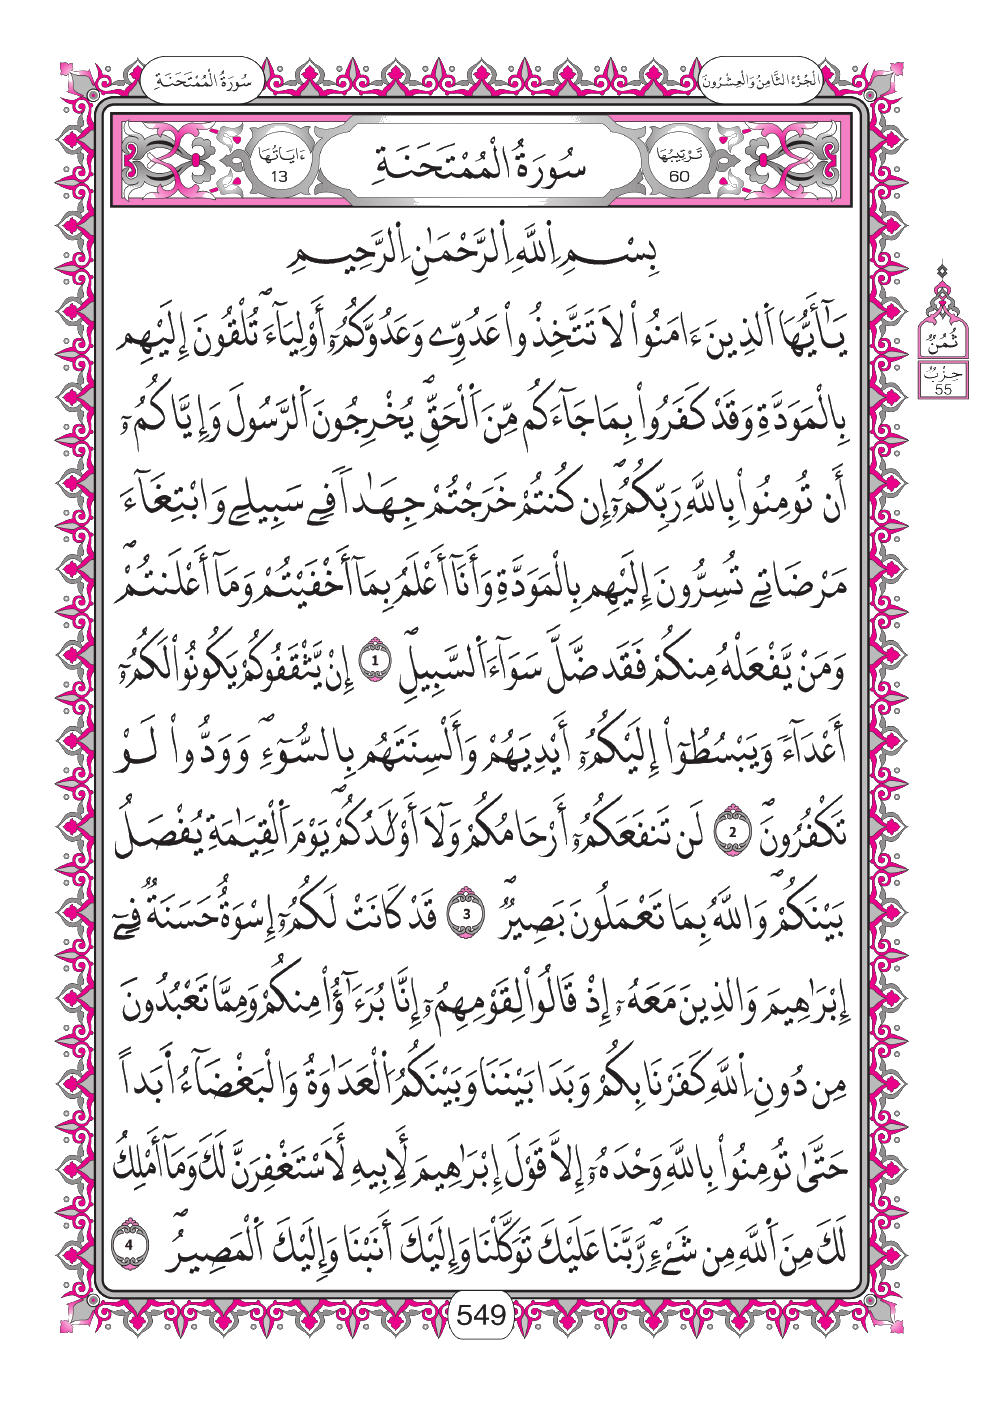 الْجُزْءُ الثَّامِنُ وَالْعِشْرُونَ
سُورَةُ الْمُمْتَحَنَةِ
تَرْتِيبُهَا 60
سُورَةُ الْمُمْتَحَنَةِ
ءَايَاتُهَا 13
بِسْمِ اِللَّهِ اِلرَّحْمَٰنِ اِلرَّحِيمِ
يَٰٓأَيُّهَا اَلذِينَ ءَامَنُواْ لَا تَتَّخِذُواْ عَدُوِّے وَعَدُوَّكُمُۥٓ أَوْلِيَآءَۖ تُلْقُونَ إِلَيْهِم
بِالْمَوَدَّةِ وَقَدْ كَفَرُواْ بِمَا جَآءَكُم مِّنَ اَلْحَقِّۖ يُخْرِجُونَ اَلرَّسُولَ وَإِيَّاكُمُۥٓ
أَن تُومِنُواْ بِاللَّهِ رَبِّكُمُۥٓۖ إِن كُنتُمْ خَرَجْتُمْ جِهَٰداٗ فِے سَبِيلِے وَابْتِغَآءَ
مَرْضَاتِے تُسِرُّونَ إِلَيْهِم بِالْمَوَدَّةِ وَأَنَآ أَعْلَمُ بِمَآ أَخْفَيْتُمْ وَمَآ أَعْلَنتُمْۖ
وَمَنْ يَّفْعَلْهُ مِنكُمْ فَقَد ضَّلَّ سَوَآءَ اَلسَّبِيلِۖ 1 إِنْ يَّثْقَفُوكُمْ يَكُونُواْ لَكُمُۥٓ
أَعْدَآءٗ وَيَبْسُطُوٓاْ إِلَيْكُمُۥٓ أَيْدِيَهُمْ وَأَلْسِنَتَهُم بِالسُّوٓءِۖ وَوَدُّواْ لَوْ
تَكْفُرُونَۖ 2 لَن تَنفَعَكُمُۥٓ أَرْحَامُكُمْ وَلَآ أَوْلَٰدُكُمْۖ يَوْمَ اَلْقِيَٰمَةِ يُفْصَلُ
بَيْنَكُمْۖ وَاللَّهُ بِمَا تَعْمَلُونَ بَصِيرٌۖ 3 قَدْ كَانَتْ لَكُمُۥٓ إِسْوَةٌ حَسَنَةٞ فِےٓ
إِبْرَٰهِيمَ وَالذِينَ مَعَهُۥٓ إِذْ قَالُواْ لِقَوْمِهِمُۥٓ إِنَّا بُرَءَٰٓؤُاْ مِنكُمْ وَمِمَّا تَعْبُدُونَ
مِن دُونِ اِللَّهِ كَفَرْنَا بِكُمْ وَبَدَا بَيْنَنَا وَبَيْنَكُمُ اَلْعَدَٰوَةُ وَالْبَغْضَآءُ أَبَداً
حَتَّىٰ تُومِنُواْ بِاللَّهِ وَحْدَهُۥٓ إِلَّا قَوْلَ إِبْرَٰهِيمَ لِأَبِيهِ لَأَسْتَغْفِرَنَّ لَكَ وَمَآ أَمْلِكُ
لَكَ مِنَ اَللَّهِ مِن شَےْءٖۖ رَّبَّنَا عَلَيْكَ تَوَكَّلْنَا وَإِلَيْكَ أَنَبْنَا وَإِلَيْكَ اَلْمَصِيرُۖ 4
ثُمُنٌ
حِزْبٌ
55
549